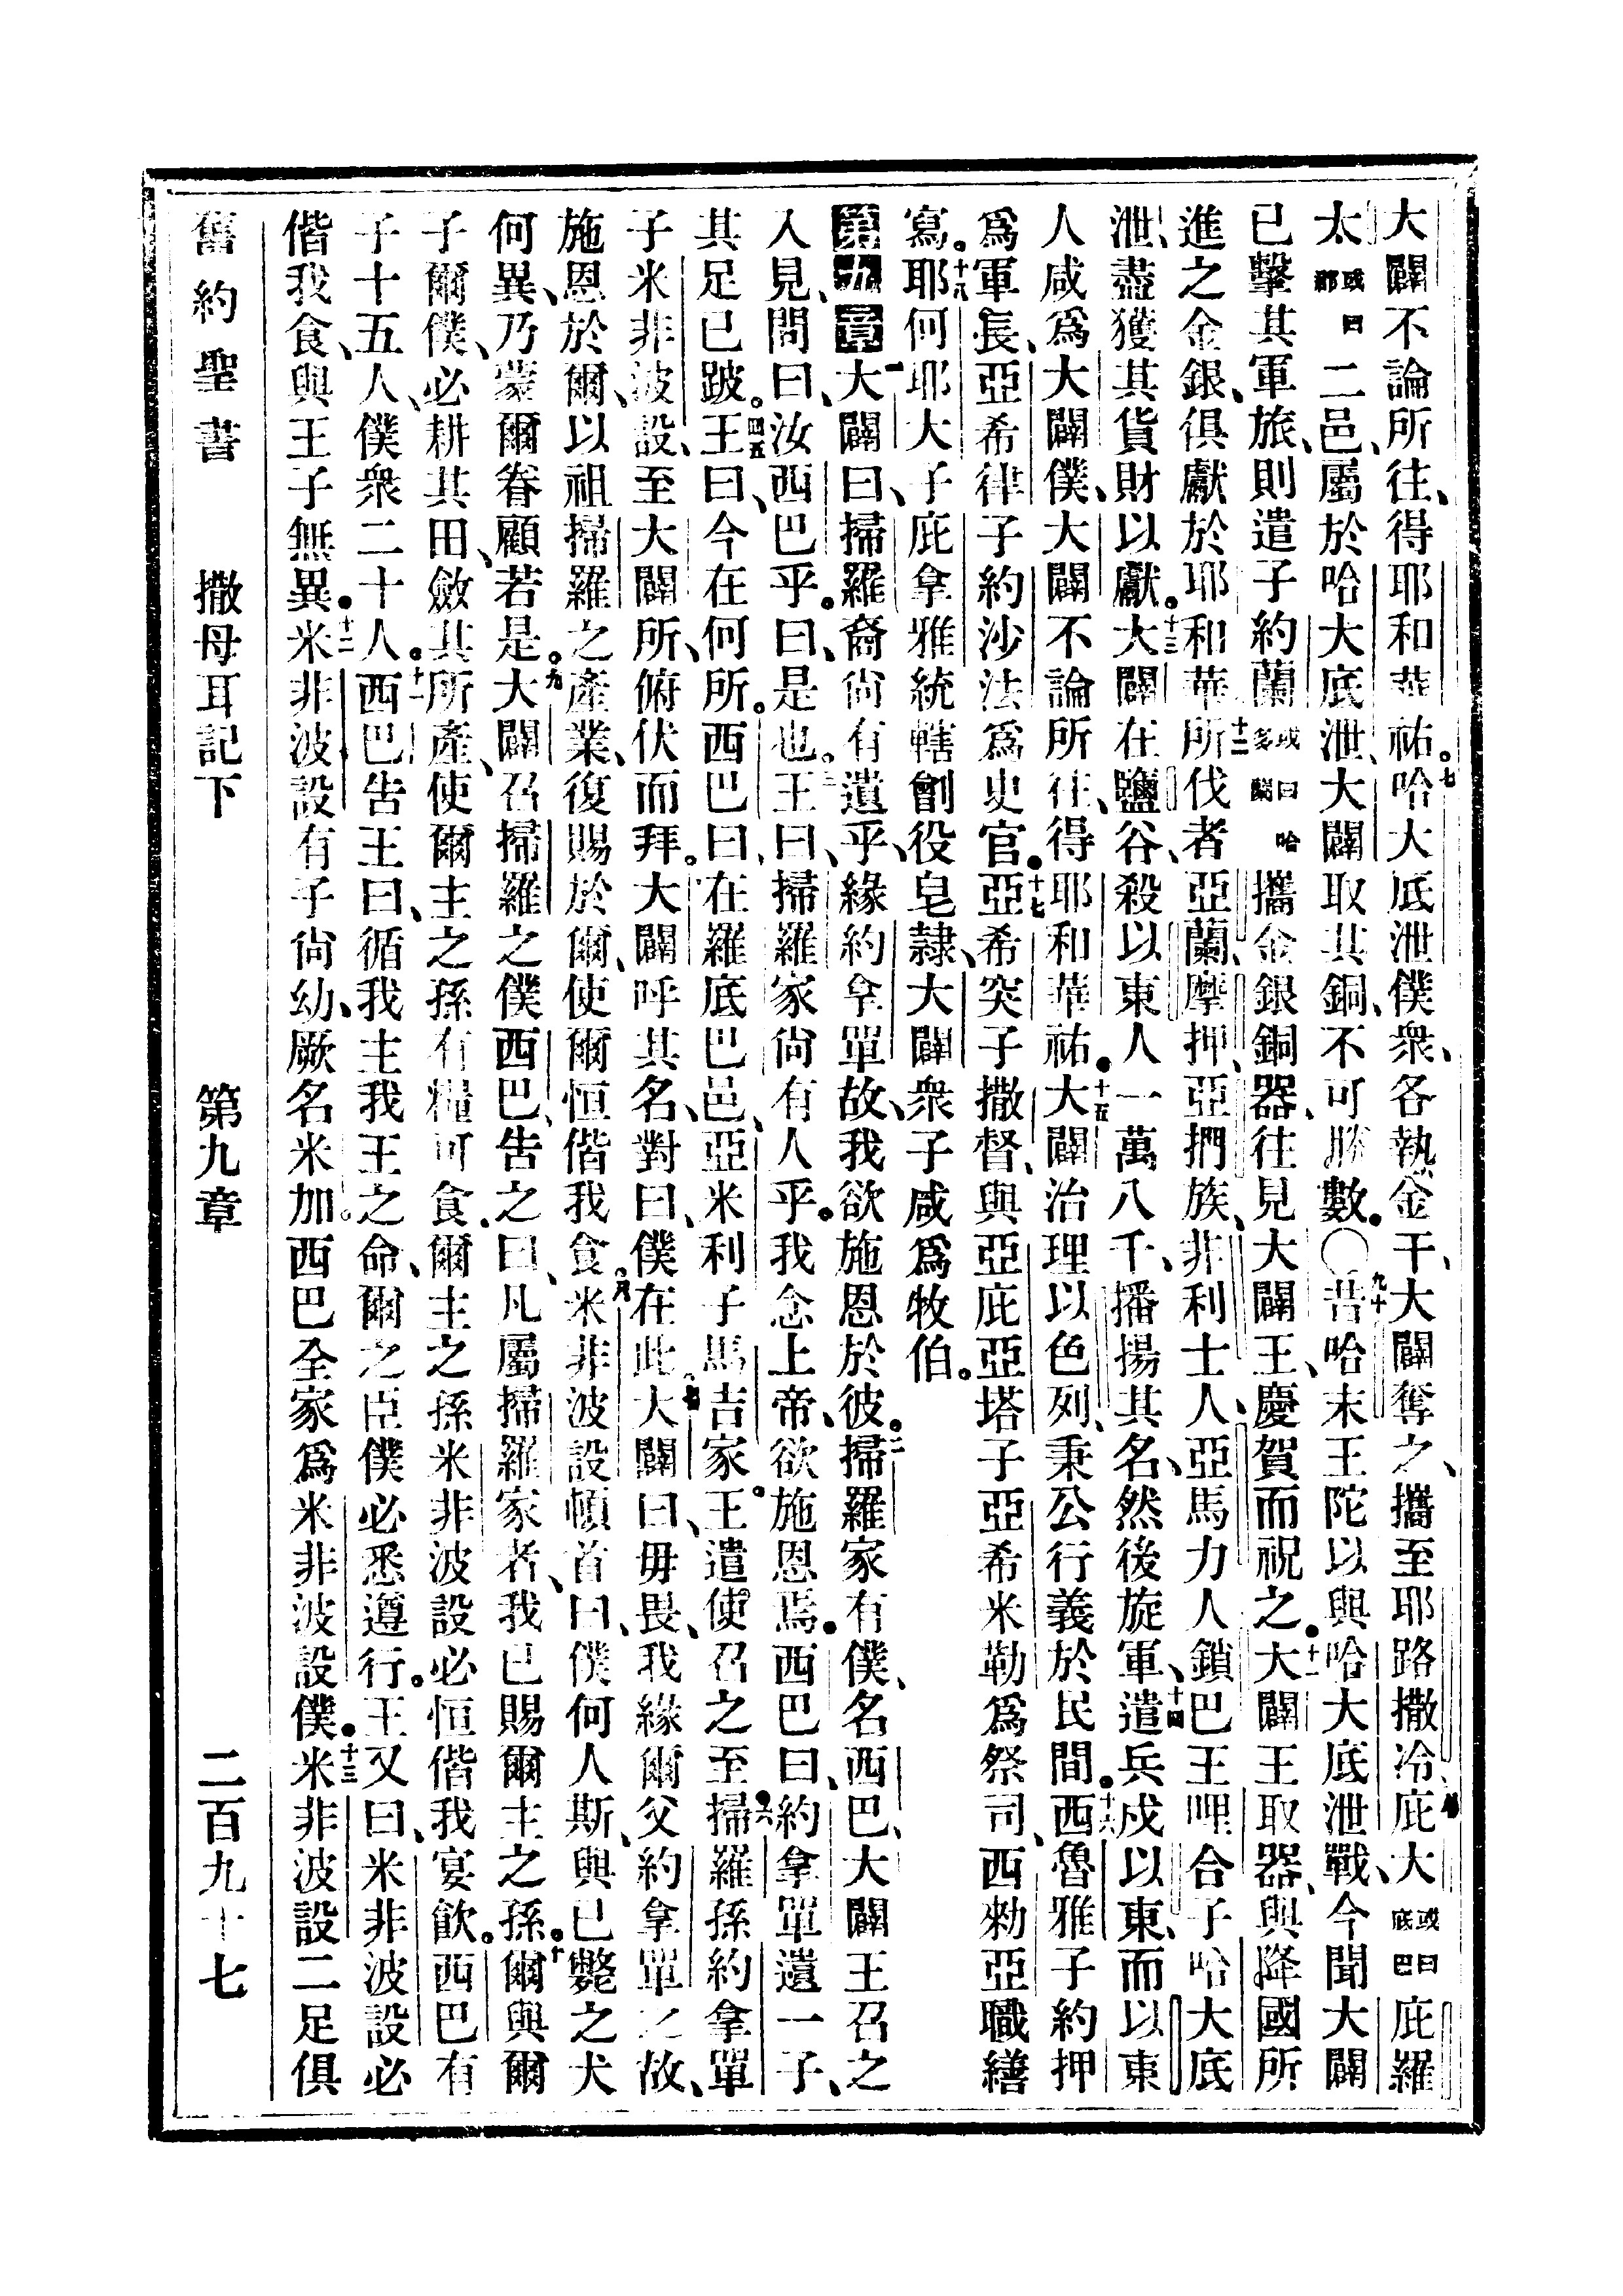 大闢不論所往、得耶和華祐。七哈大底泄僕衆、各執金干、大闢奪之、攜至耶路撒冷、八庇大或曰底巴庇羅
太或曰郡二邑、屬於哈大底泄、大闢取其銅、不可勝數。〇九十昔哈末王陀以與哈大底泄戰、今聞大闢
已擊其軍旅、則遣子約蘭或曰哈多蘭攜金銀銅器、往見大闢王、慶賀而祝之。十一大闢王取器、與降國所
進之金銀、俱獻於耶和華、十二所伐者亞蘭、摩押、亞捫族、非利士人、亞馬力人、鎖巴王哩合子哈大底
泄、盡獲其貨財以獻。十三大闢在鹽谷、殺以東人一萬八千、播揚其名、然後旋軍、十四遣兵戍以東、而以東
人咸爲大闢僕、大闢不論所往、得耶和華祐。十五大闢治理以色列、秉公行義於民間。十六西魯雅子約押
爲軍長、亞希律子約沙法爲史官。十七亞希突子撒督、與亞庇亞塔子亞希米勒爲祭司、西勑亞職繕
寫。十八耶何耶大子庇拿雅統轄劊役皂隸、大闢衆子咸爲牧伯。
第九章一大闢曰、掃羅裔尙有遺乎、緣約拿單故、我欲施恩於彼。二掃羅家有僕、名西巴、大闢王召之
入見、問曰、汝西巴乎。曰、是也。三王曰、掃羅家尙有人乎。我念上帝、欲施恩焉。西巴曰、約拿單遺一子、
其足已跛。四五王曰、今在何所。西巴曰、在羅底巴邑、亞米利子馬吉家。王遣使召之至。六掃羅孫約拿單
子米非波設、至大闢所、俯伏而拜。大闢呼其名、對曰、僕在此。七大闢曰、毋畏、我緣爾父約拿單之故、
施恩於爾、以祖掃羅之產業、復賜於爾、使爾恒偕我食。八米非波設頓首曰、僕何人斯、與已斃之犬
何異、乃蒙爾眷顧若是。九大闢召掃羅之僕西巴、吿之曰、凡屬掃羅家者、我已賜爾主之孫。十爾與爾
子爾僕、必耕其田、斂其所產、使爾主之孫有糧可食。爾主之孫米非波設必恒偕我宴飮。西巴有
子十五人、僕衆二十人。十一西巴吿王曰、循我主我王之命、爾之臣僕必悉遵行。王又曰、米非波設必
偕我食、與王子無異。十二米非波設有子尙幼、厥名米加。西巴全家爲米非波設僕。十三米非波設二足俱
舊約聖書　撒母耳記下　第九章　二百九十七